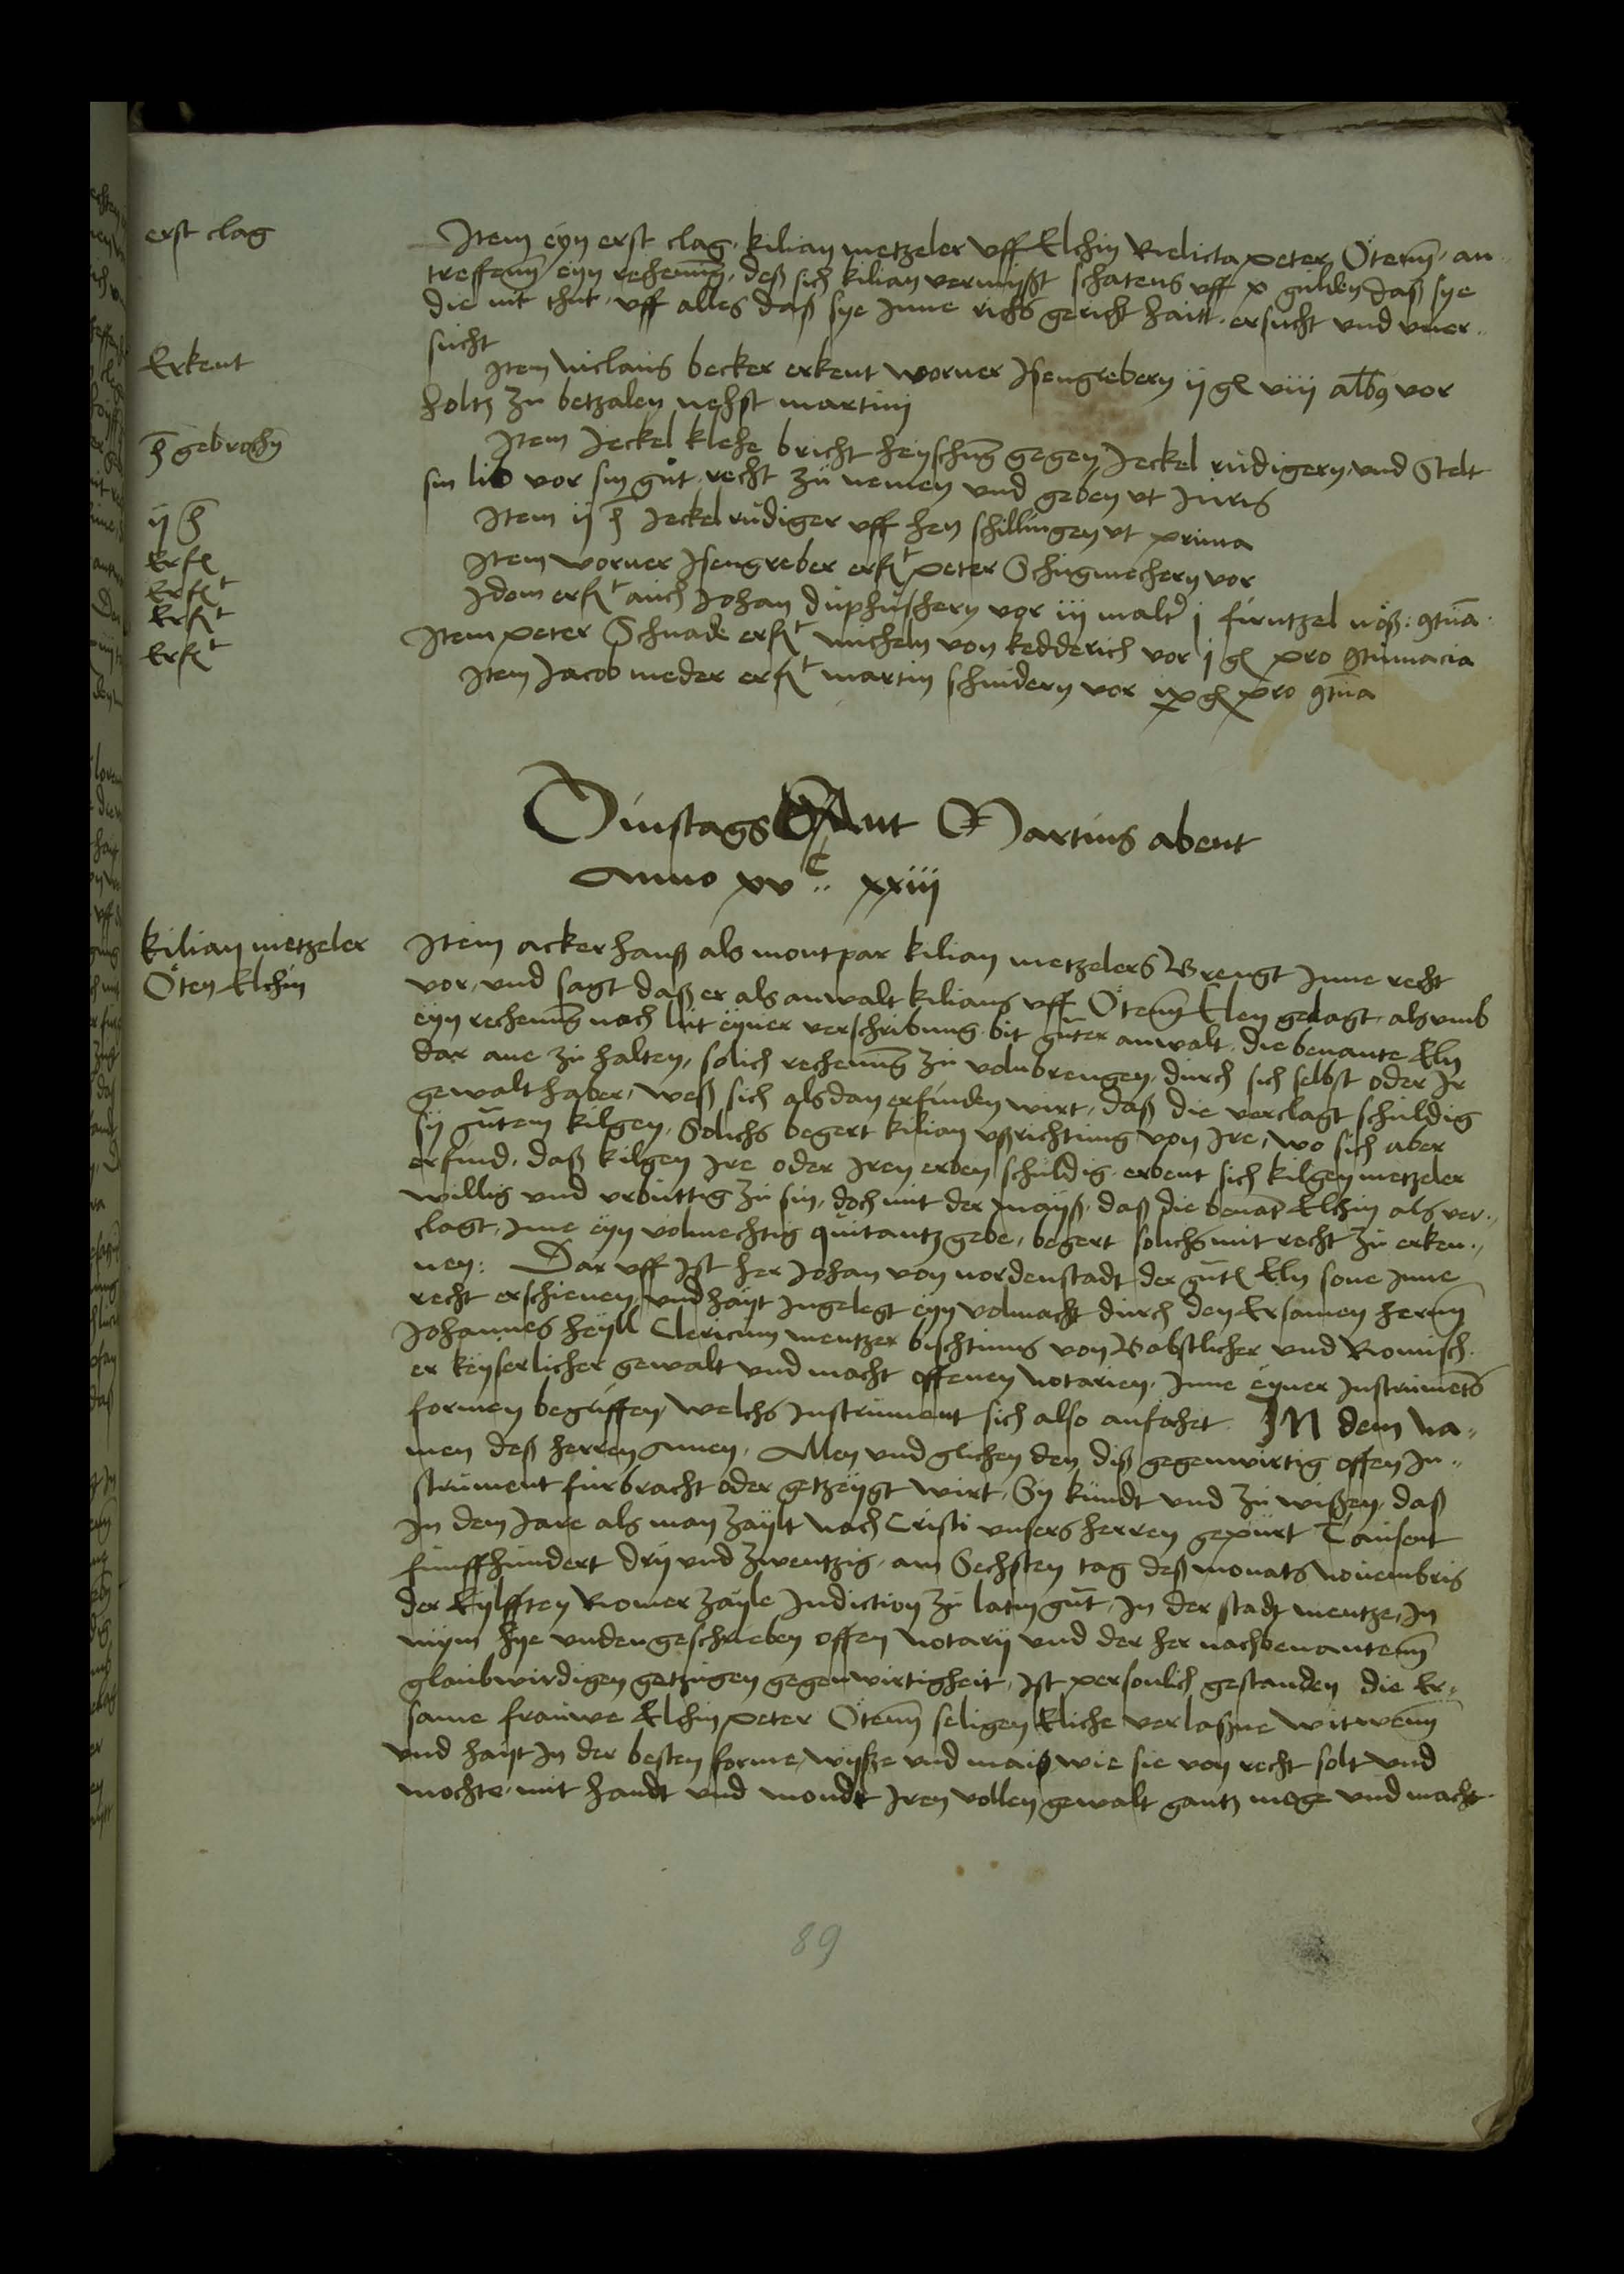 erst clag
Item eyn erst clag kilian metzeler uff Elchin Relicta peter Otenn, an-
treffenn eyn rechenung, deß sich kilian vermyßt schatens uff x gulden daß sye
die nit thut, uff alles daß sye Inne richs gericht haitt. ersucht und uner-
sucht
Erkent
Item niclaus becker erkent worner Isengrebern ij gl viij albus vor
holtz zu betzalen nehst martinj
h gebrochn
Item Jeckel klehe bricht heyschung gegen Jeckel rudigern, und Stelt
sin lib vor sin gut recht zu nemen und geben ut Juris
ij h
Item ij h Jeckel rudiger uff hen schillingen ut prima
Erfl
Item worner Isengreber erfl t peter Schugmechern vor
Erfl t
Idem erfl t auch Johan duphuschern vor iij malter j firntzel noß: 9tua
Erfl t
Item peter Schnade erfl t micheln von kedderich vor j gl pro 9tumacia
Erfl t
Item Jacob meder erfl t martin schnidern vor ix gl pro 9tua
Dinstags Ant Martins abent
Anno xv C xxiij
kilian metzeler
Oten Elchin
Item acker hanß als montpar kilian metzelers Brengt Inne recht
vor, und sagt daß er als anwalt kilians uff Otenn Elen gedagt, als umb
eyn rechenung nach lut eyner verschribung. bit guter anwalt, die benante Eln
dar ane zu halten, solich rechenung zu volnbrengen, durch sich selbst oder Ir
gewalthaber, weß sich alsdan erfinden wirt, daß die verclagt schuldig
sy gutem kilgen, Solichs begert kilian ußrichtung von Ire, wo sich aber
erfind, daß kilgen Ire oder Iren erben schuldig erbeut sich kilgen metzeler
willig und urbuttig zu sin, doch mit der mayß, daß die benant Elchin als ver-
clagt, Ime eyn volmechtig quitantz gebe, begert solichs mit recht zu erken-
nen: Dar uff Ist her Johan von nordenstadt der gutl Eln sone Inne
recht erschienen, und hayt Ingelegt eyn volmacht durch den Ersamen hernn
Johannes heyll Clericum mentzer bisthums von Bobstlicher und Romisch-
er keyserlicher gewalt und macht offenen notarien, Inne eyner Instruments
formen begriffen, welchs Instrument sich also anfohet IN dem Na-
men deß herren Amen, Allen und glichen den diß gegenwirtig offen In-
strument furbracht oder getzeygt wirt, Sy kundt und zu wißen, daß
In dem Jare als man zaylt Nach Cristi unsers herren gepurt Tausent
funffhundert dry und zwentzig, am Sechsten tag deß monats Novembris
der Eylfften Romer zayle Indiction zu latin gut, In der stadt mentze, In
mym hye undengeschrieben offen Notary und der her nachbenantenn
glaubwirdigen getzugen gegenwirtigheit, Ist personlich gestanden die Er-
same frauwe Elchin peter Otenn seligen Eliche verlaßne witwenn
und hayt In der besten forme, wyße und maiß wie sie von recht solt und
mochte, mit handt und mondt Iren vollen gewalt gantz moge und macht
89